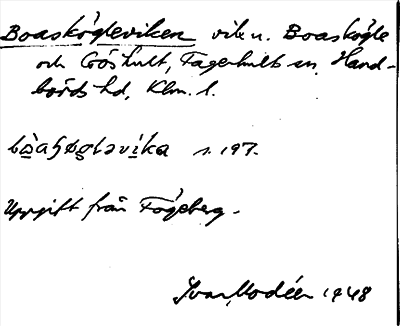 Boaskögleviken vik n. Boaskögle
och Gröshult, Fagerhults sn, Hand-
börds hd, Klm. l.
s. 197.
Uppgift från Fågeberg.
Ivar Modéer 1948